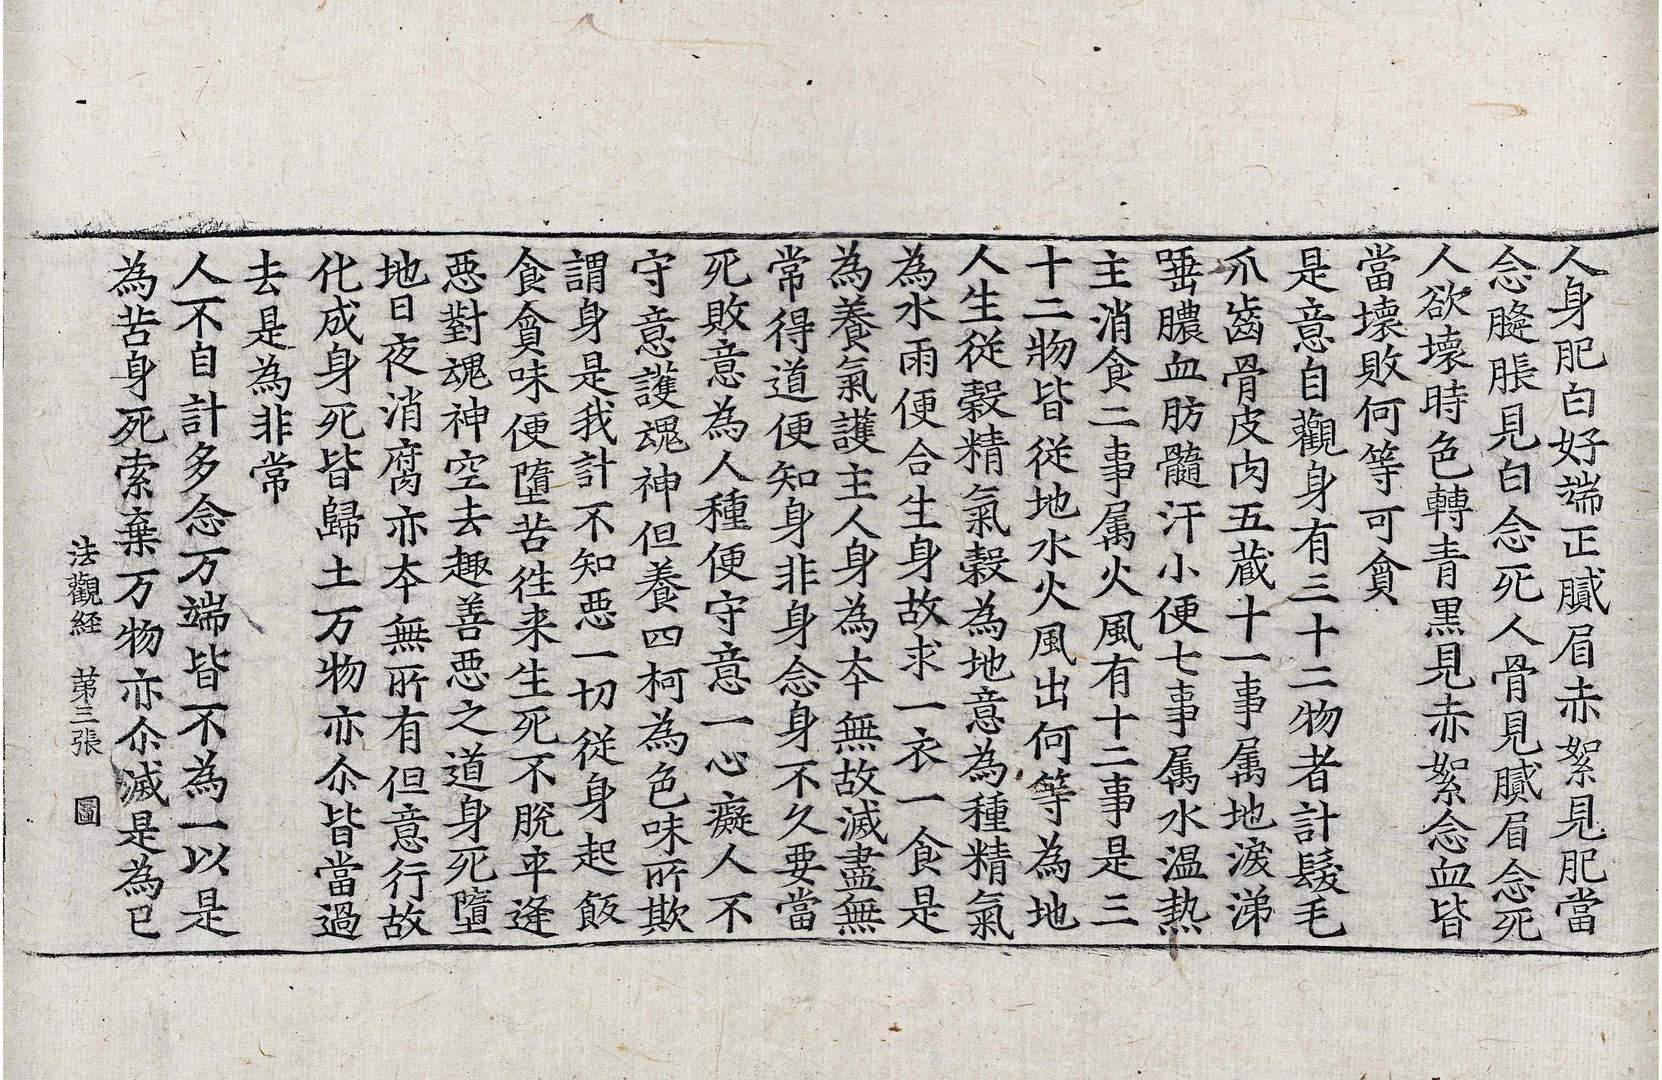 人身肥白好端正膩眉赤絮見肥當
念膖脹見白念死人骨見膩眉念死
人欲壞時色轉青黑見赤絮念血皆
當壞敗何等可貪
是意自觀身有三十二物者計髮毛
爪齒骨皮肉五藏十一事属地淚涕
唾膿血肪髓汗小便七事属水温熱
主消食二事属火風有十二事是三
十二物皆従地水火風出何等為地
人生従穀精氣穀為地意為種精氣
為水雨便合生身故求一衣一食是
為養氣護主人身為夲無故滅盡無
常得道便知身非身念身不久要當
死敗意為人種便守意一心癡人不
守意護魂神但養四柯為色味所欺
謂身是我計不知惡一切従身起飯
食貪味便墮苦徃来生死不脫卒逢
惡對魂神空去趣善惡之道身死墮
地日夜消腐亦夲無所有但意行故
化成身死皆歸土万物亦尒皆當過
去是為非常
人不自計多念万端皆不為一以是
為苦身死索棄万物亦尒滅是為已
法觀経 苐三張 圖